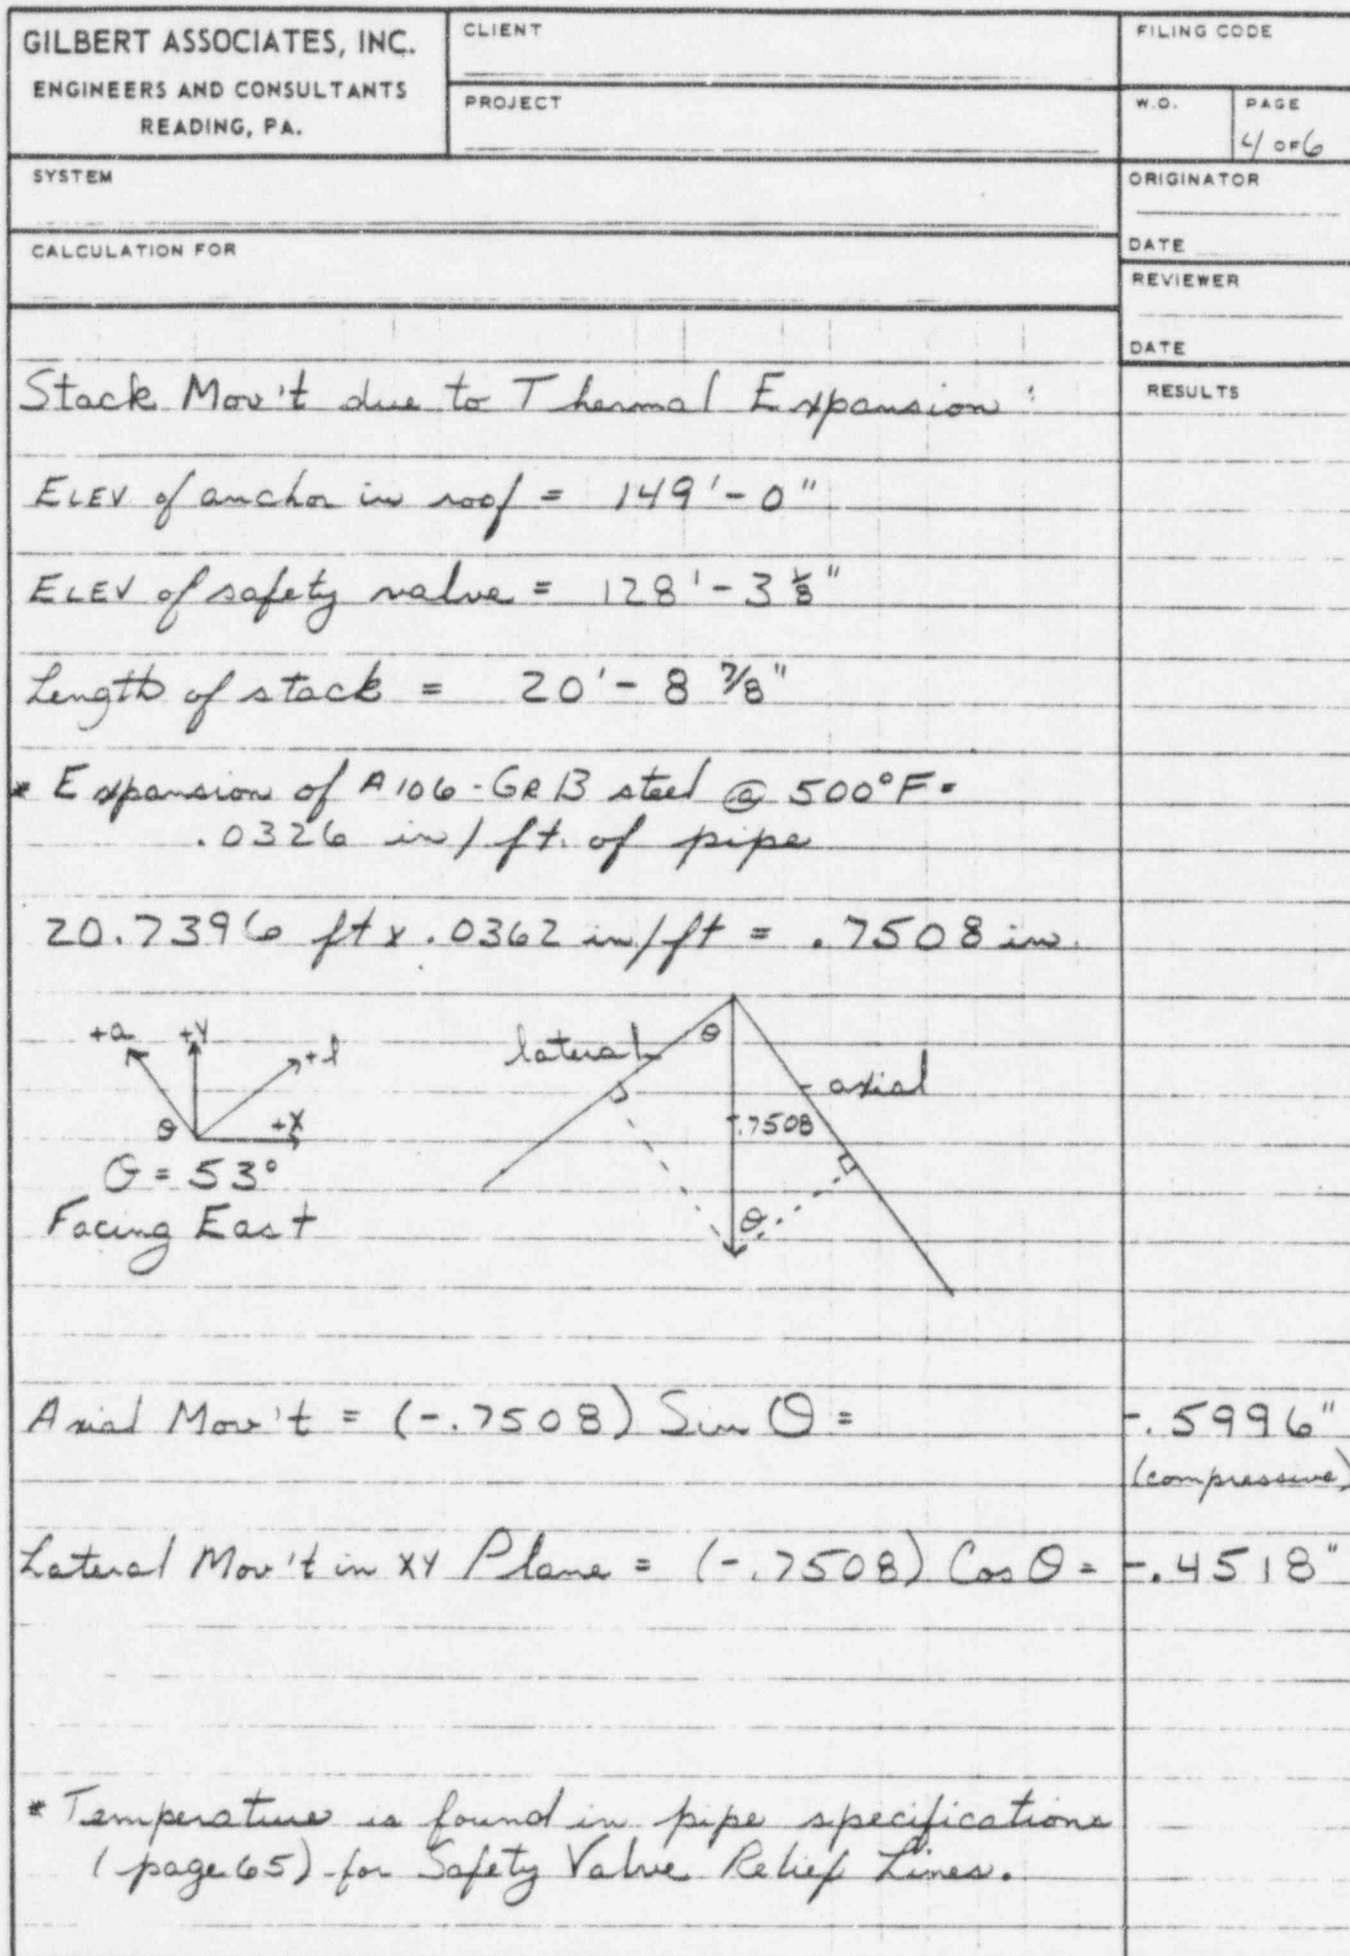 GILBERT ASSOCIATES, INC.
ENGINEERS AND CONSULTANTS
READING, PA.
CLIENT
PROJECT
FILING CODE
W.O.
PAGE
4 OF 6
SYSTEM
CALCULATION FOR
ORIGINATOR
DATE
REVIEWER
DATE
RESULTS
Stack Mov't due to Thermal Expansion:
ELEV of anchor in roof = 149'-0"
ELEV of safety valve = 128'-3 1/8"
Length of stack = 20'-8 7/8"
* Expansion of A106-GR B steel @ 500°F =
.0326 in/ft. of pipe
20.7396 ft x .0362 in/ft = .7508 in.
+a +Y +l
θ +X
θ = 53°
Facing East
lateral θ
axial
.7508
θ
Axial Mov't = (-.7508) Sin θ = -.5996"
(compressive)
Lateral Mov't in XY Plane = (-.7508) Cos θ = -.4518"
* Temperature is found in pipe specifications
(page 65) for Safety Valve Relief Lines.